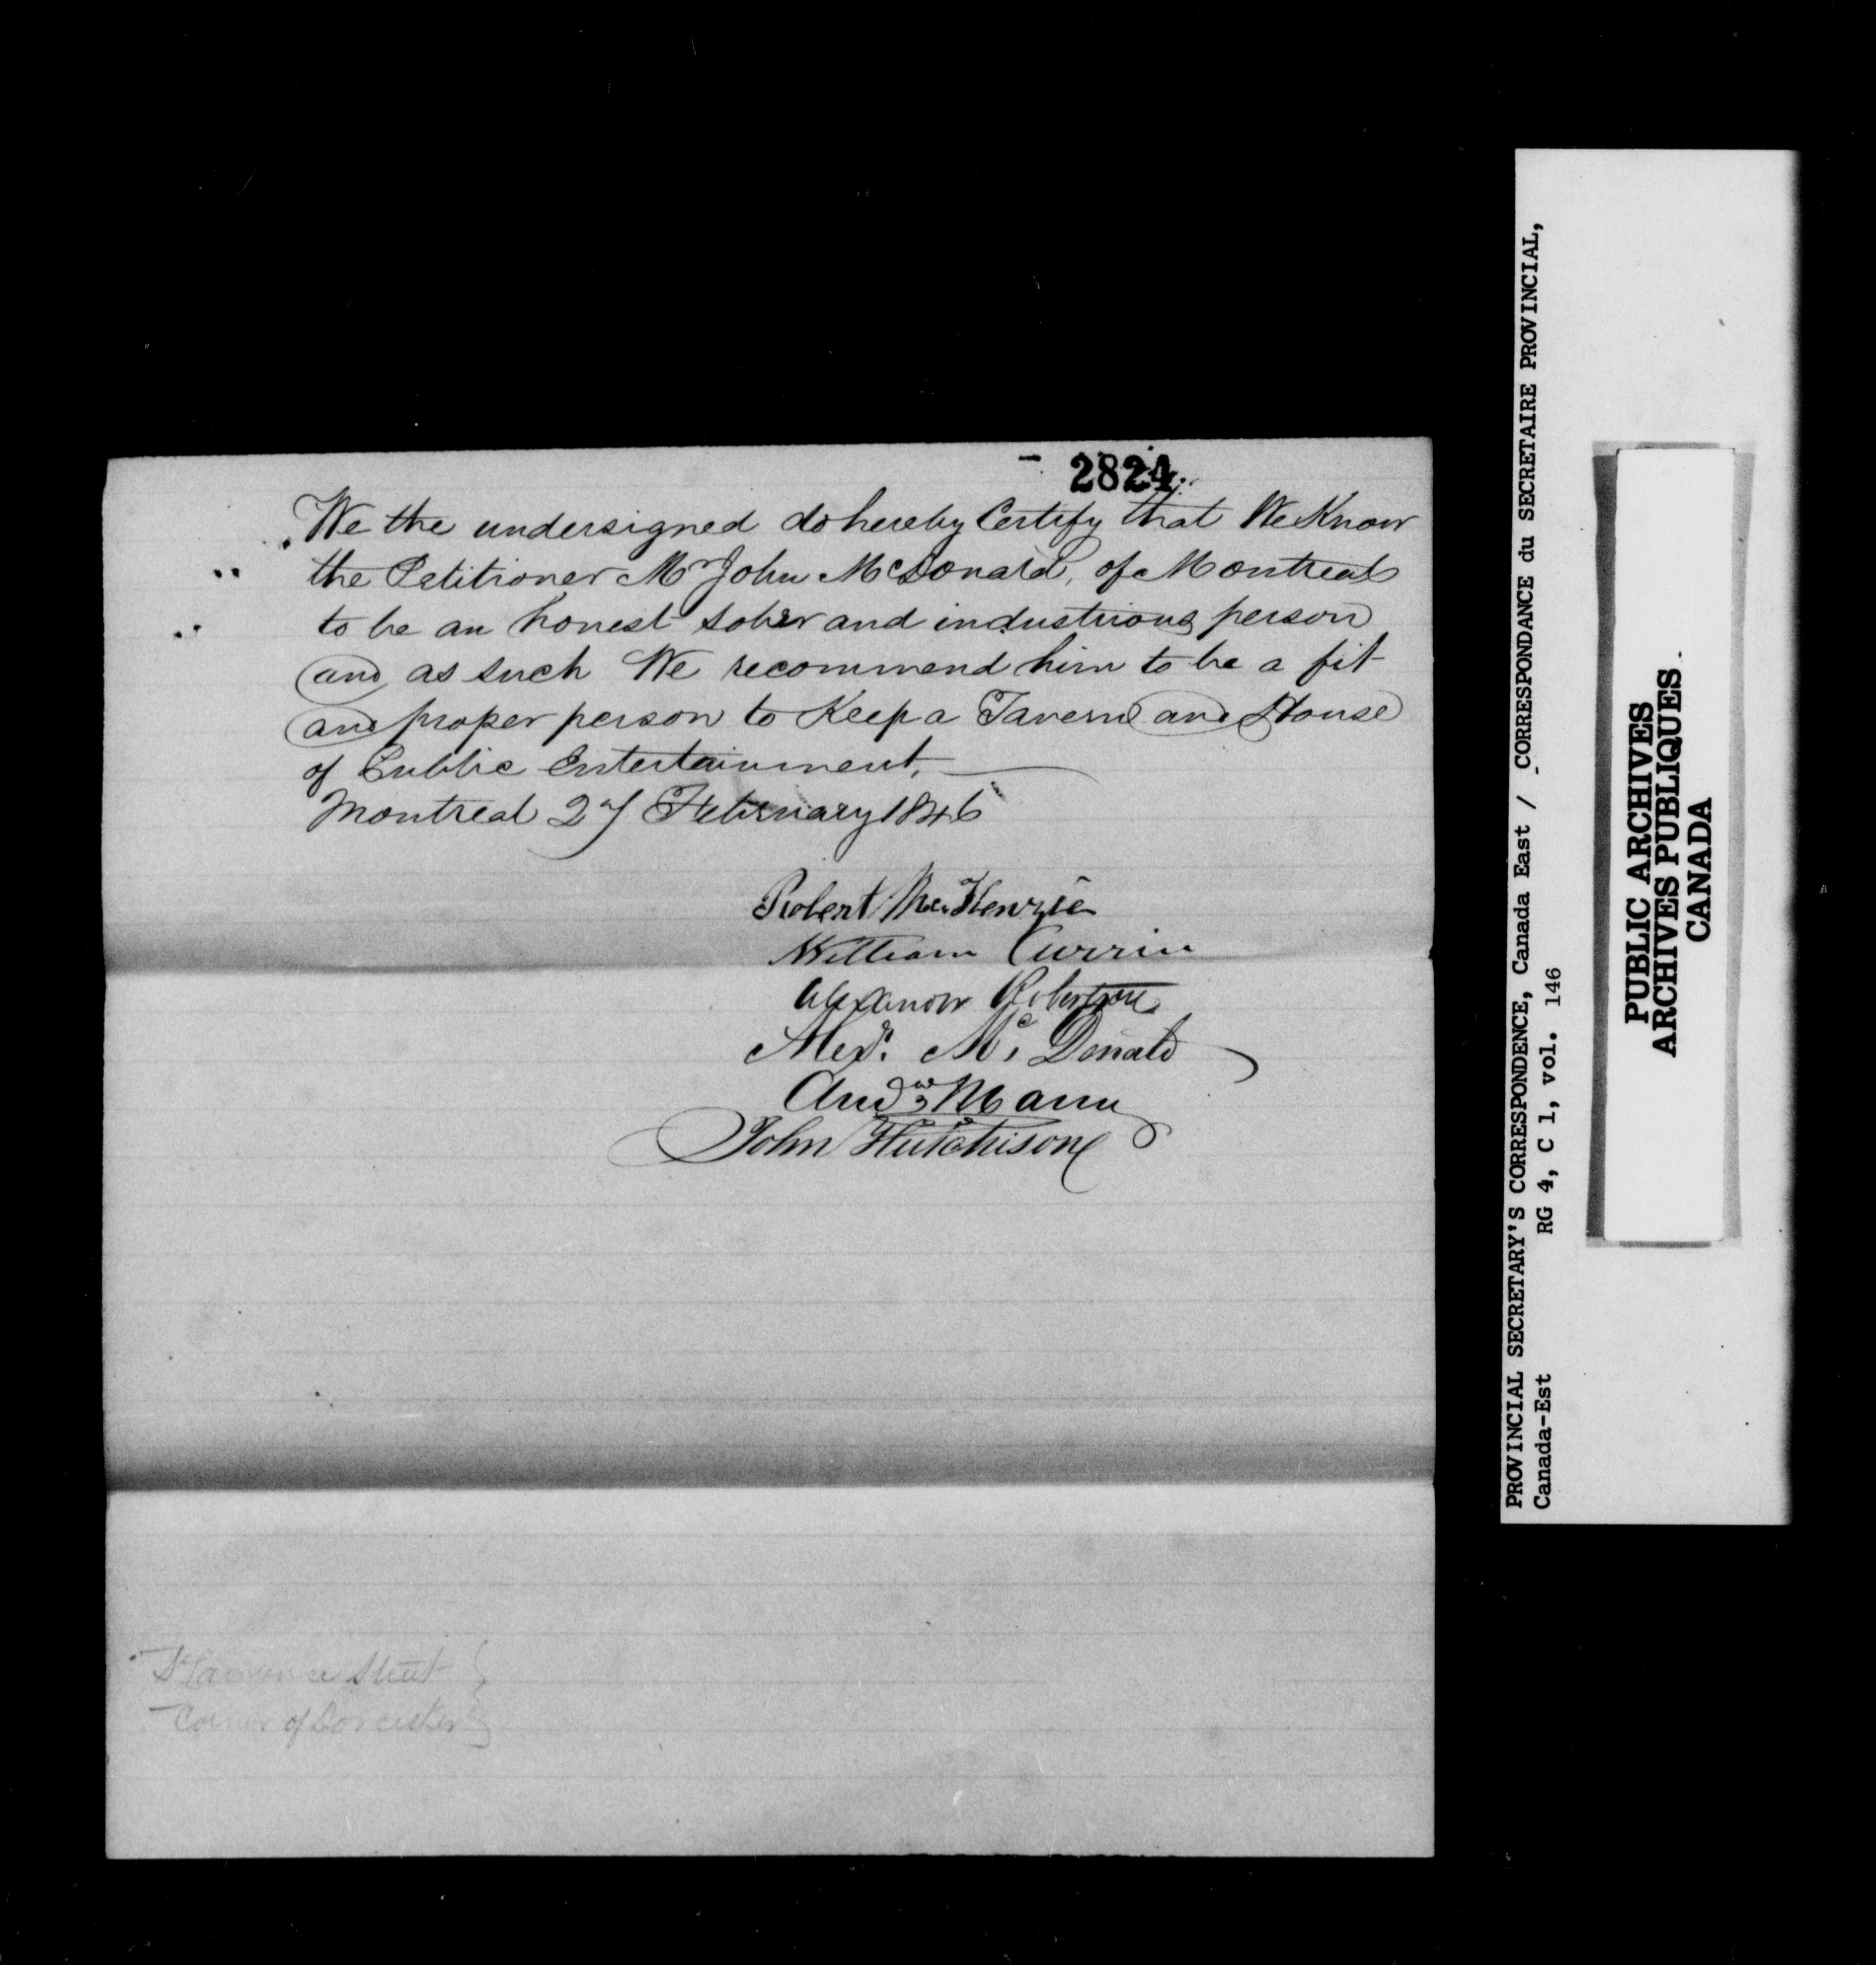 2824
We the undersigned do hereby Certify that We Know
the Petitioner Mr John McDonald, of Montreal
to be an honest sober and industrious person
and as such We recommend him to be a fit
and proper person to Keep a Tavern and House
of Public Entertainment.
Montreal 27 February 1846
Robert McKenzie
William Currie
Alexander Robertson
Alexr. Mc. Donald
Andw Mann
John Hutchison
St Lawrence Street
Corner of Dorcester
PROVINCIAL SECRETARY'S CORRESPONDENCE, Canada East / CORRESPONDANCE du SECRETAIRE PROVINCIAL,
Canada-Est RG 4, C 1, vol. 146
PUBLIC ARCHIVES
ARCHIVES PUBLIQUES
CANADA